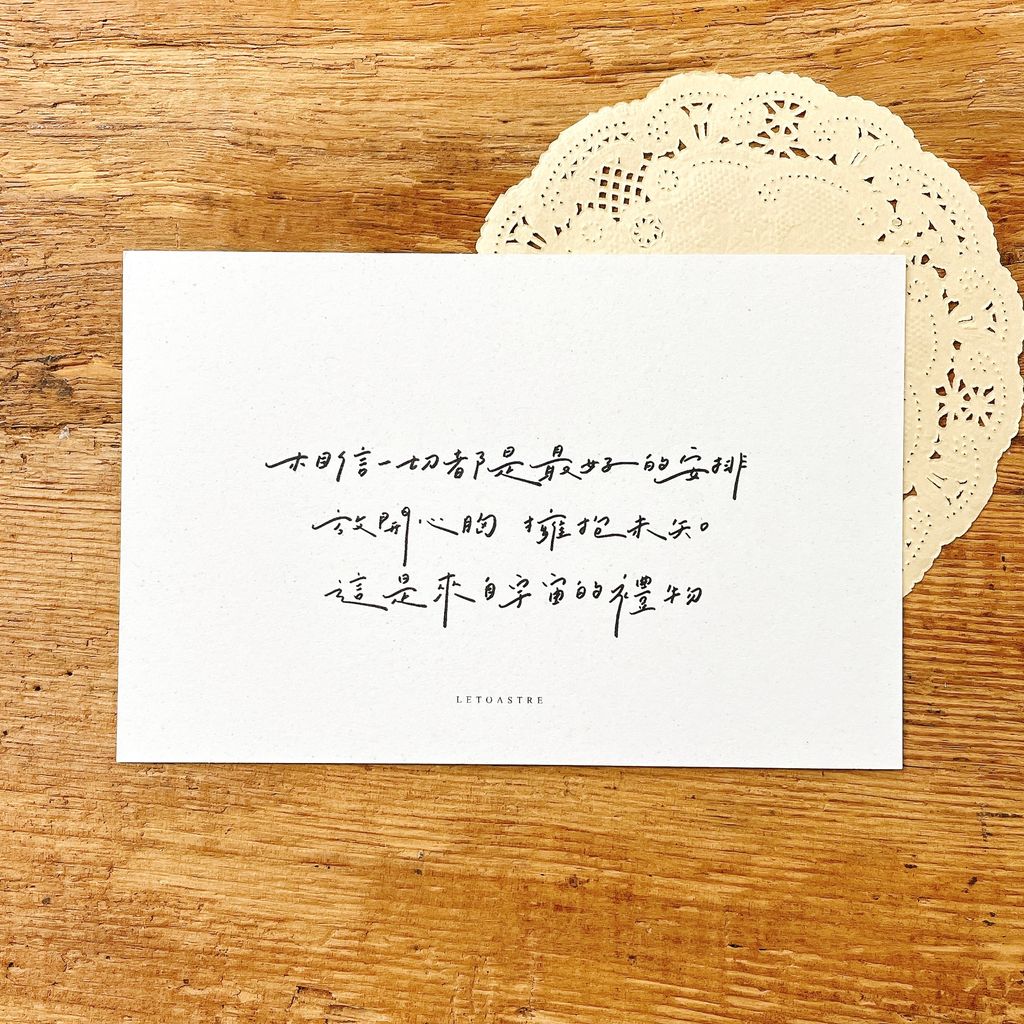 相信一切都是最好的安排
放開心胸 擁抱未知。
這是來自宇宙的禮物
LETOASTRE